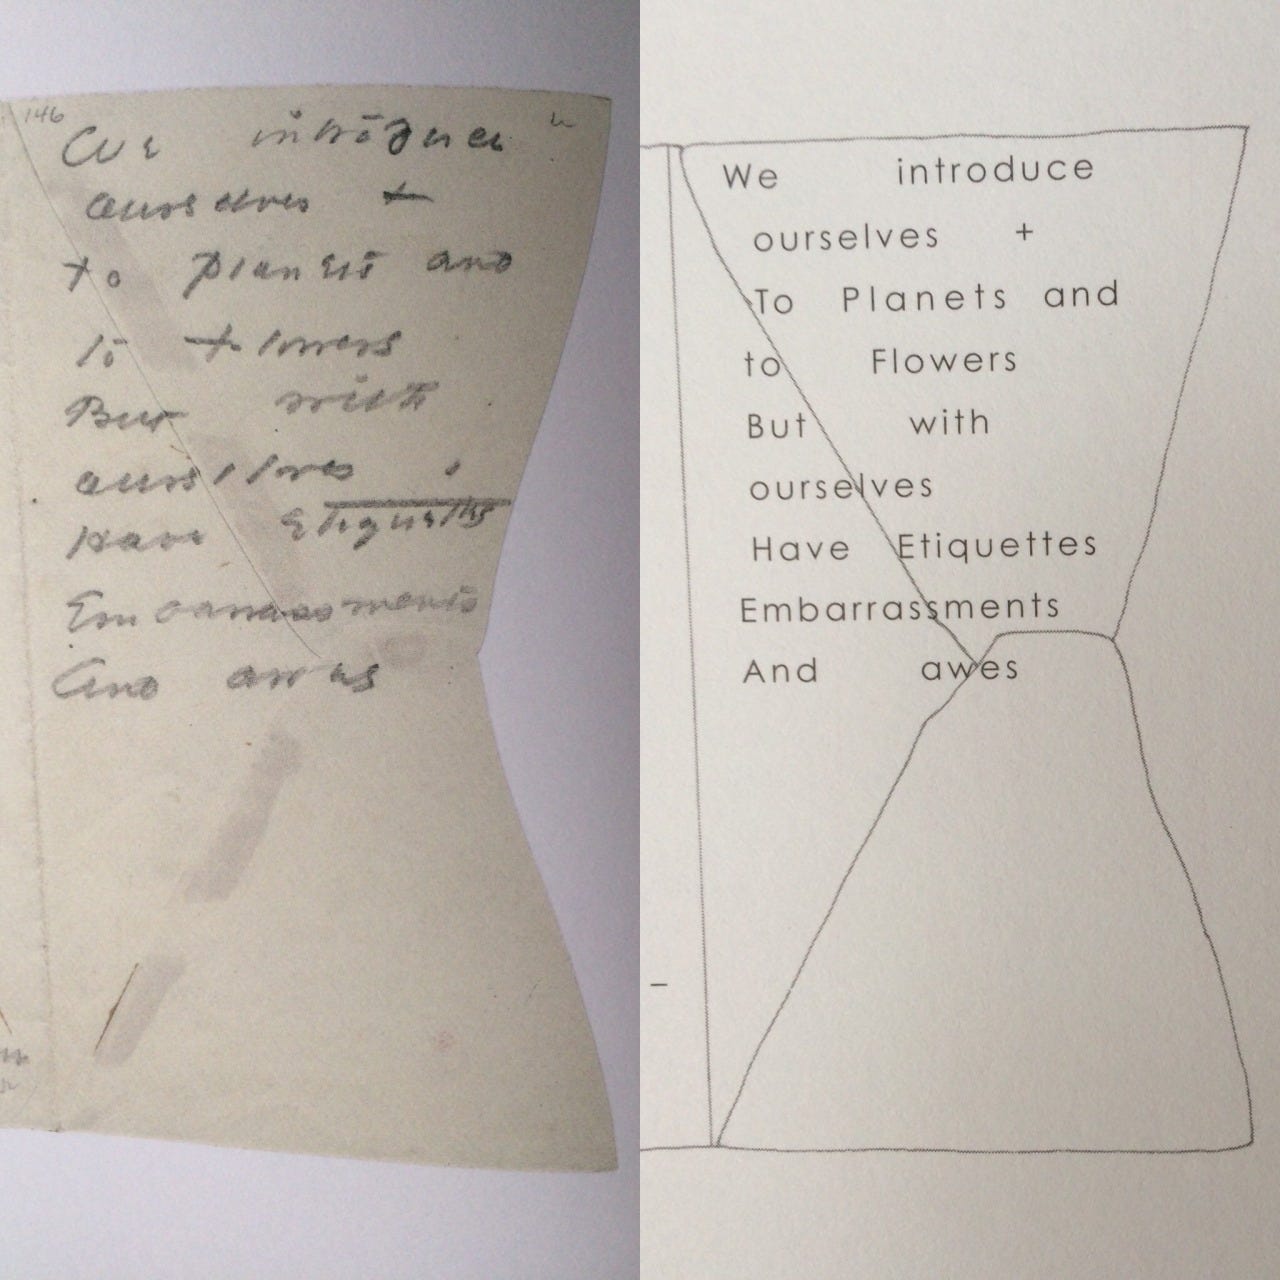 146
We introduce
ourselves +
to Planets and
to Flowers
But with
ourselves
Have Etiquettes
Embarrassments
And awes
We introduce
ourselves +
To Planets and
to Flowers
But with
ourselves
Have Etiquettes
Embarrassments
And awes
–